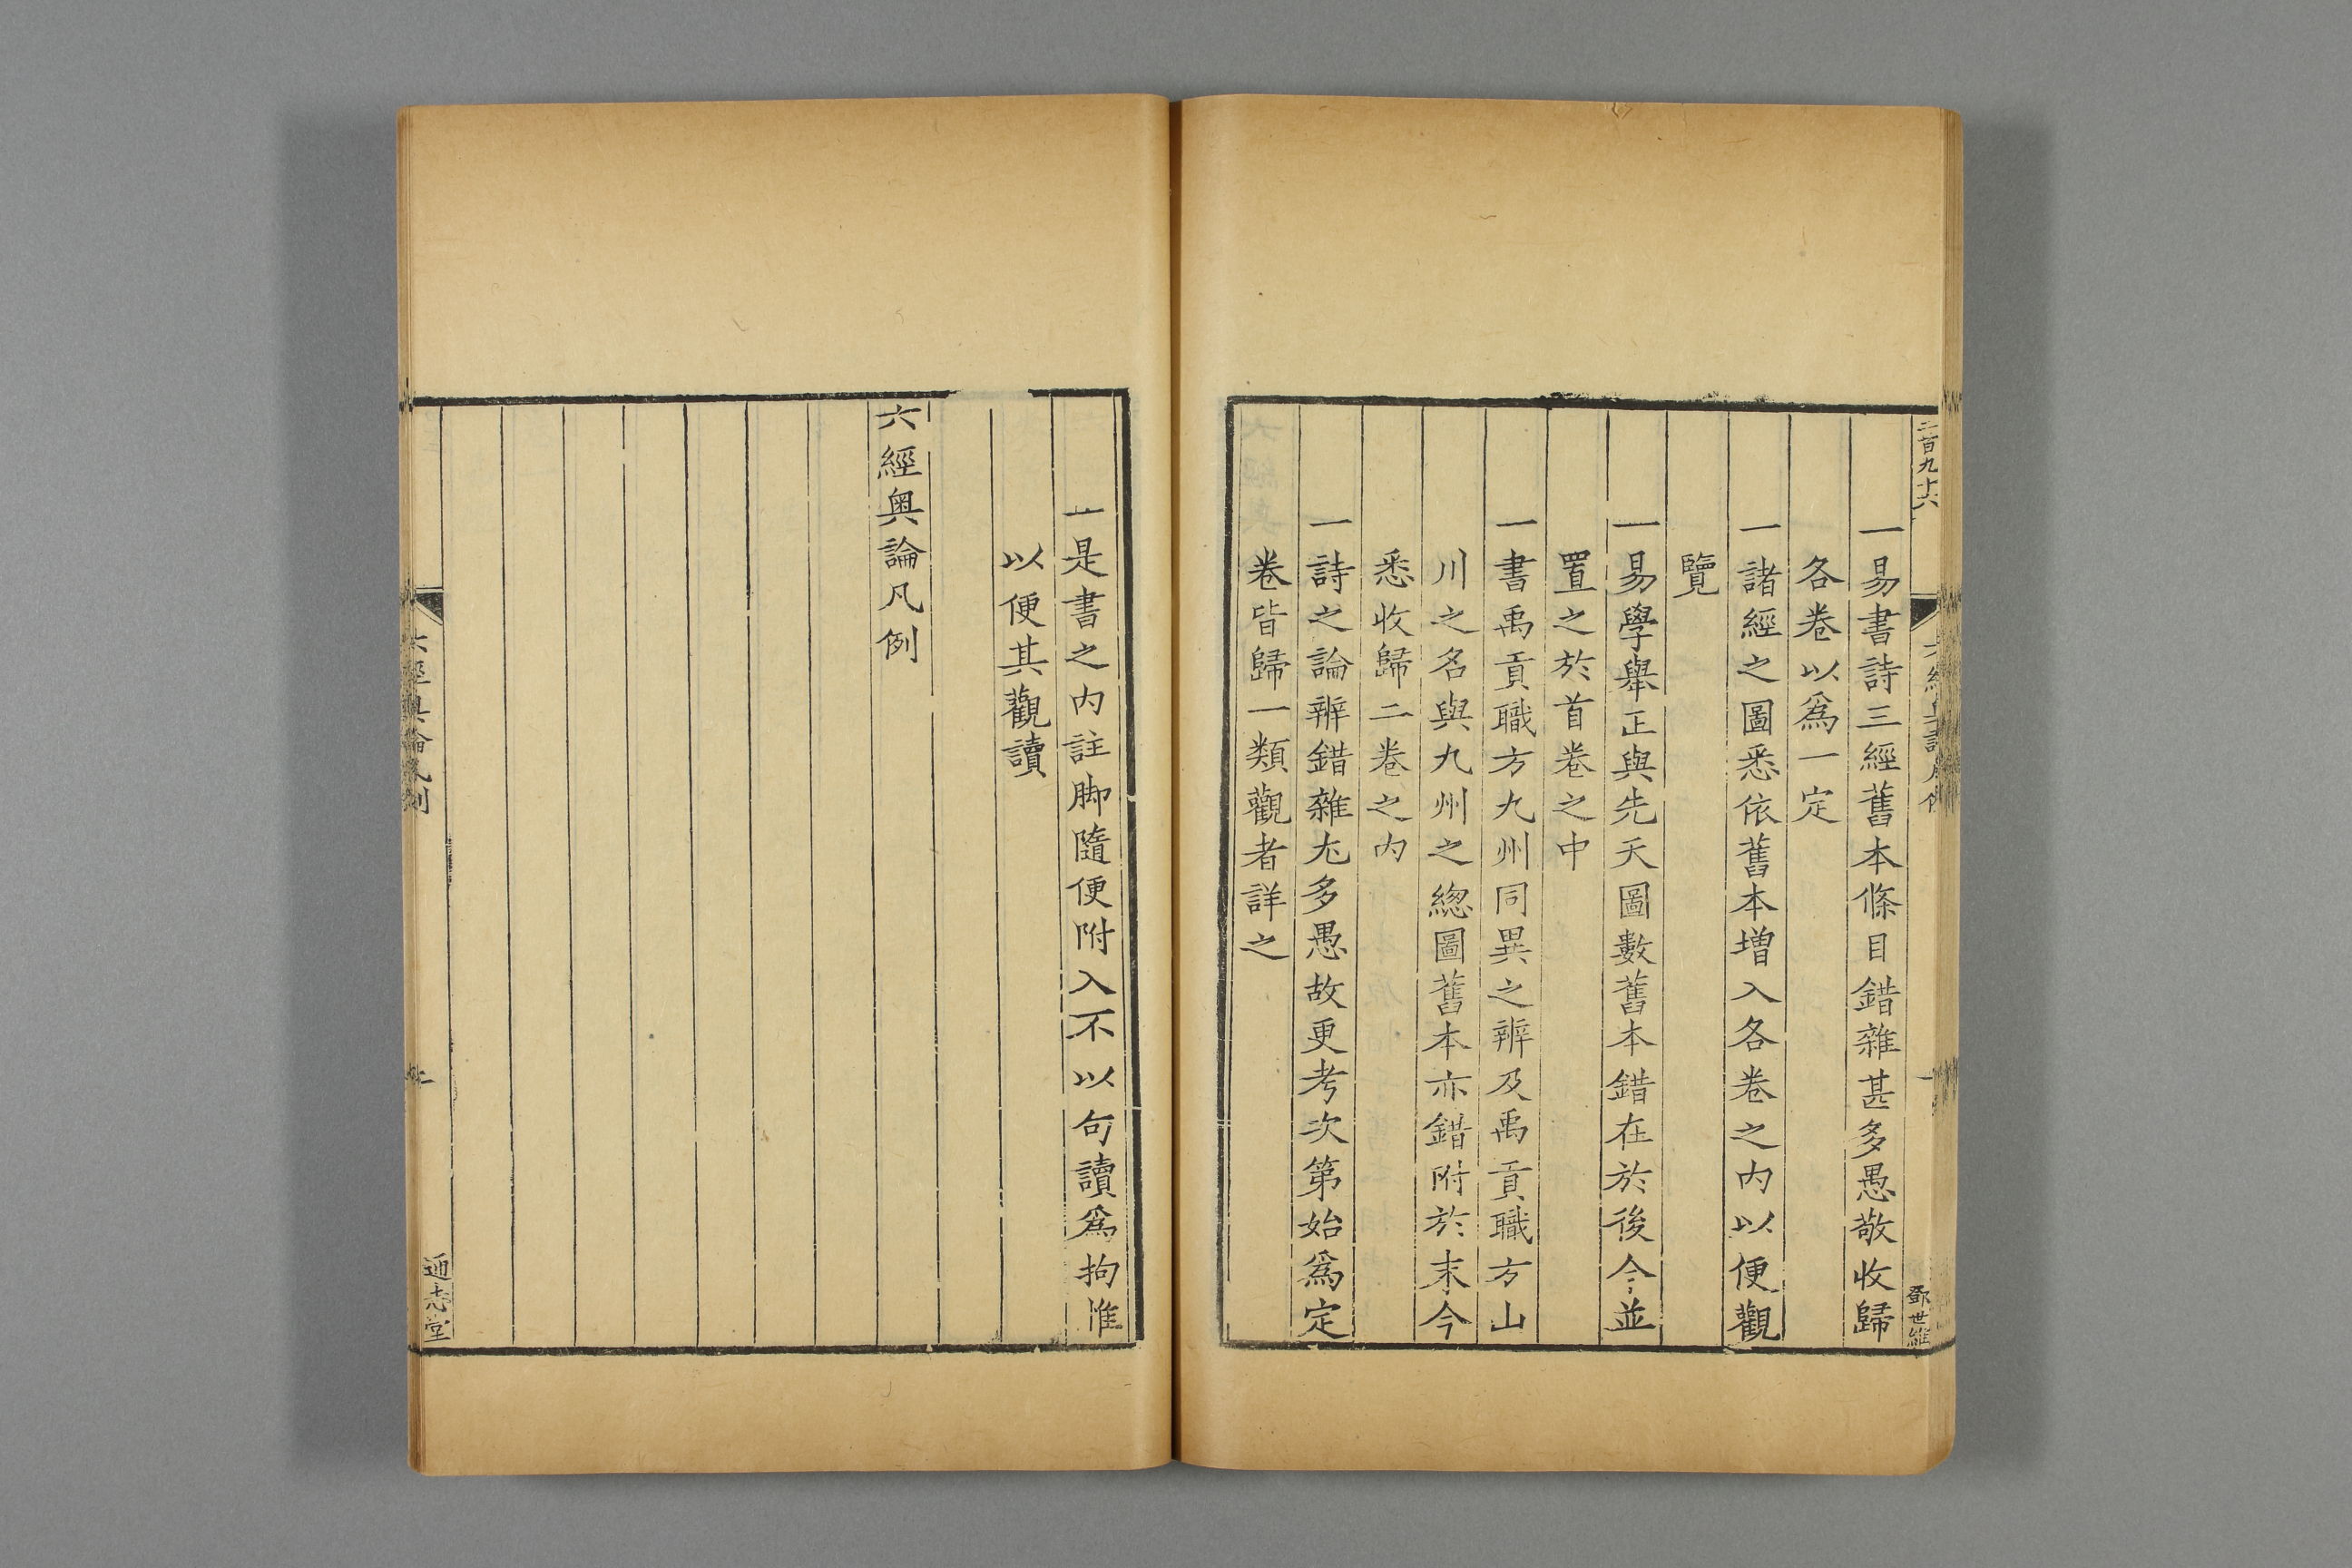 二百九十六
六經奧論凡例
一
鄧世維
一易書詩三經舊本條目錯雜甚多愚敬收歸
各卷以爲一定
一諸經之圖悉依舊本增入各卷之內以便觀
覽
一易學舉正與先天圖數舊本錯在於後今並
置之於首卷之中
一書禹貢職方九州同異之辨及禹貢職方山
川之名與九州之緫圖舊本亦錯附於末今
悉收歸二卷之內
一詩之論辨錯雜尤多愚故更考次第始爲定
卷皆歸一類觀者詳之
一是書之內註脚隨便附入不以句讀爲拘惟
以便其觀讀
六經奧論凡例
六經奧論凡例
通志堂